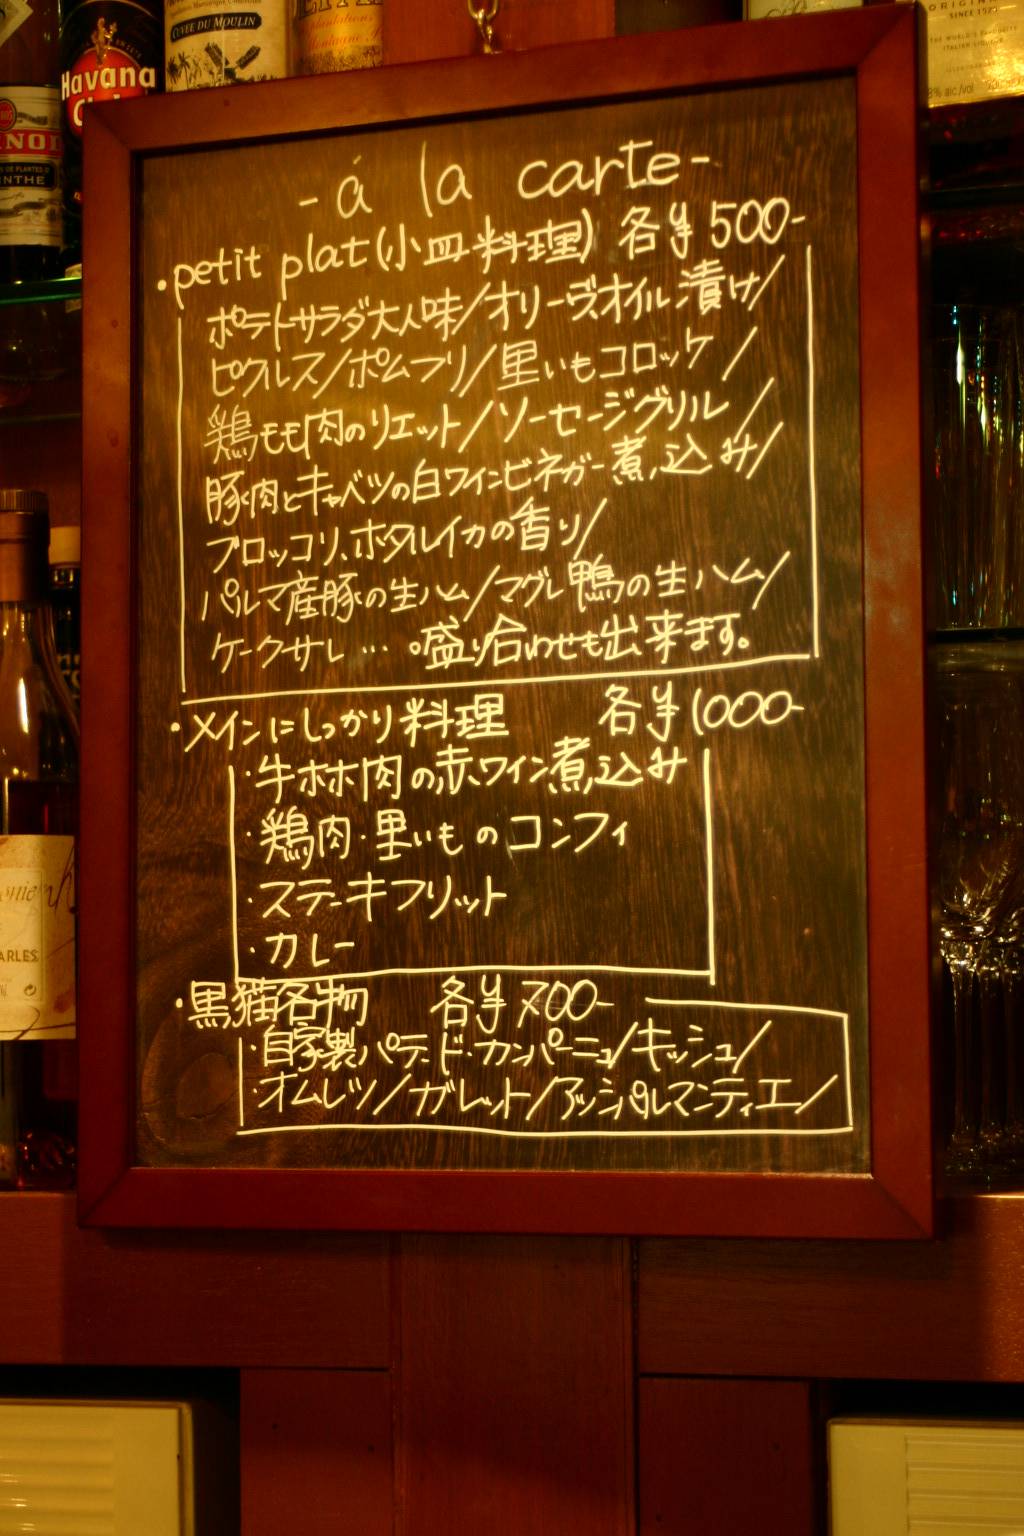 CUVEE DU MOULIN
Havana
SINCE 1525
-á la carte-
・petit plat(小皿料理) 各¥500-
ポテトサラダ大人味/オリーヴオイル漬け/
ピクルス/ポムフリ/里いもコロッケ/
鶏もも肉のリエット/ソーセージグリル/
豚肉とキャベツの白ワインビネガー煮込み/
ブロッコリ、ホタルイカの香り/
パルマ産豚の生ハム/マグレ鴨の生ハム/
ケークサレ…。盛り合わせも出来ます。
・メインにしっかり料理 各¥1000-
・牛ホホ肉の赤ワイン煮込み
・鶏肉・里いものコンフィ
・ステーキフリット
・カレー
・黒猫名物 各¥700-
・自家製パテ・ド・カンパーニュ/キッシュ/
・オムレツ/ガレット/アッシパルマンティエ/
ARLES